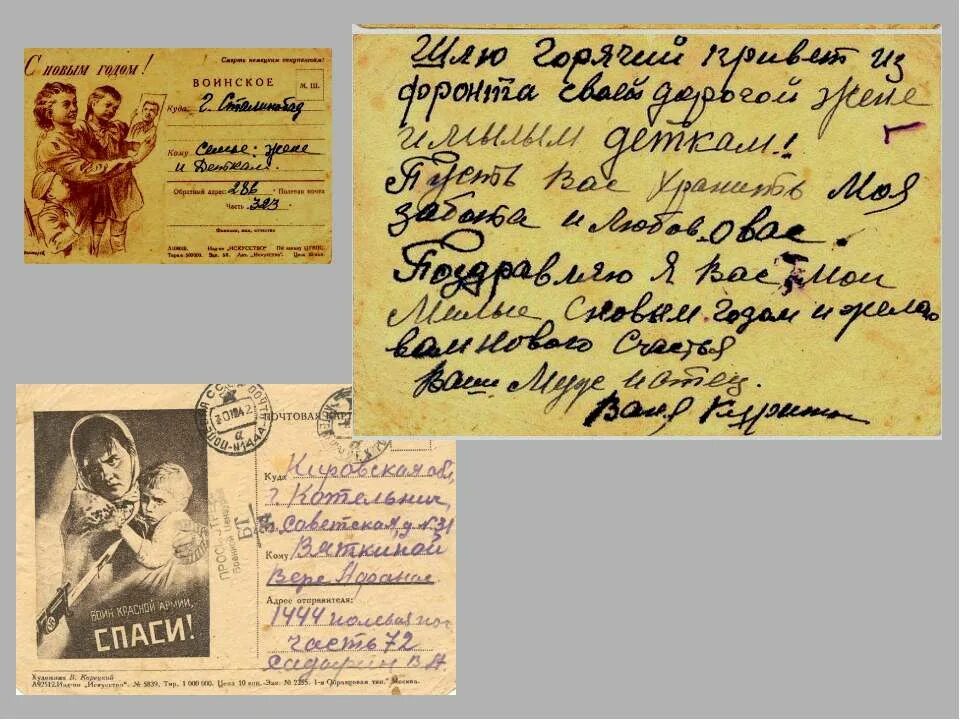 С НОВЫМ ГОДОМ!
Смерть немецким оккупантам!
ВОИНСКОЕ
М. Ш.
Куда: г. Сталинабад
Кому Семье: жене
и Деткам.
Обратный адрес: 286 Полевая почта
Часть 323
Фамилия, имя, отчество
Изд-во „ИСКУССТВО"
Шлю Горячий привет из
фронта своей дорогой жене
и милым деткам!
Пусть Вас хранить Моя
забота и любов о вас.
Поздравляю Я Вас Мои
Милые с новым годом и желаю
вам нового счастья
Ваш Муж и отец.
Ваня
ПОЧТОВАЯ
Куда Кировская обл,
г. Котельнич,
Советская, д №31
Кому Вяткиной
Вере
Адрес отправителя:
1444 полевая
часть 72
ВОИН КРАСНОЙ АРМИИ,
СПАСИ!
Художник В. Корецкий
А92512. Изд-во „Искусство". № 5839. Тир. 1 000 000. Цена 10 коп. Зак. № 2295. 1-я Образцовая тип. Москва.